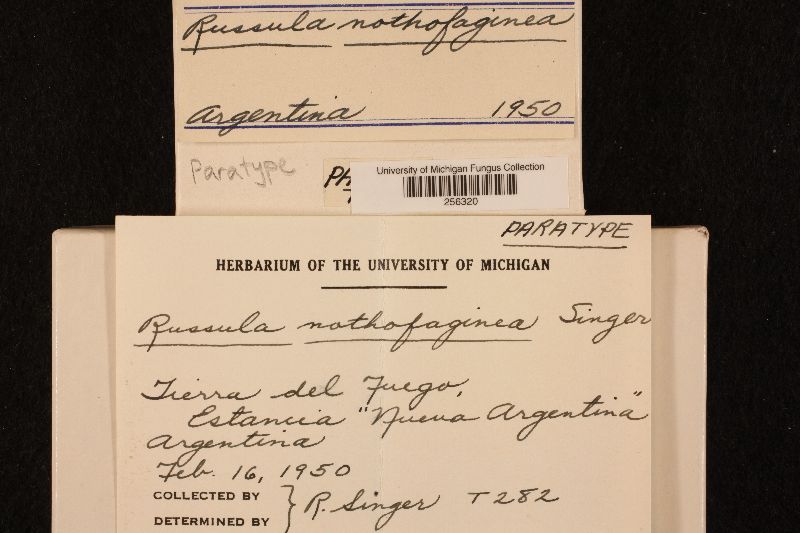 Russula nothofaginea
Argentina 1950
Paratype
University of Michigan Fungus Collection
256320
PARATYPE
HERBARIUM OF THE UNIVERSITY OF MICHIGAN
Russula nothofaginea Singer
Tierra del Fuego,
Estancia "Nueva Argentina"
Argentina
Feb. 16, 1950
COLLECTED BY
DETERMINED BY } R. Singer T 282